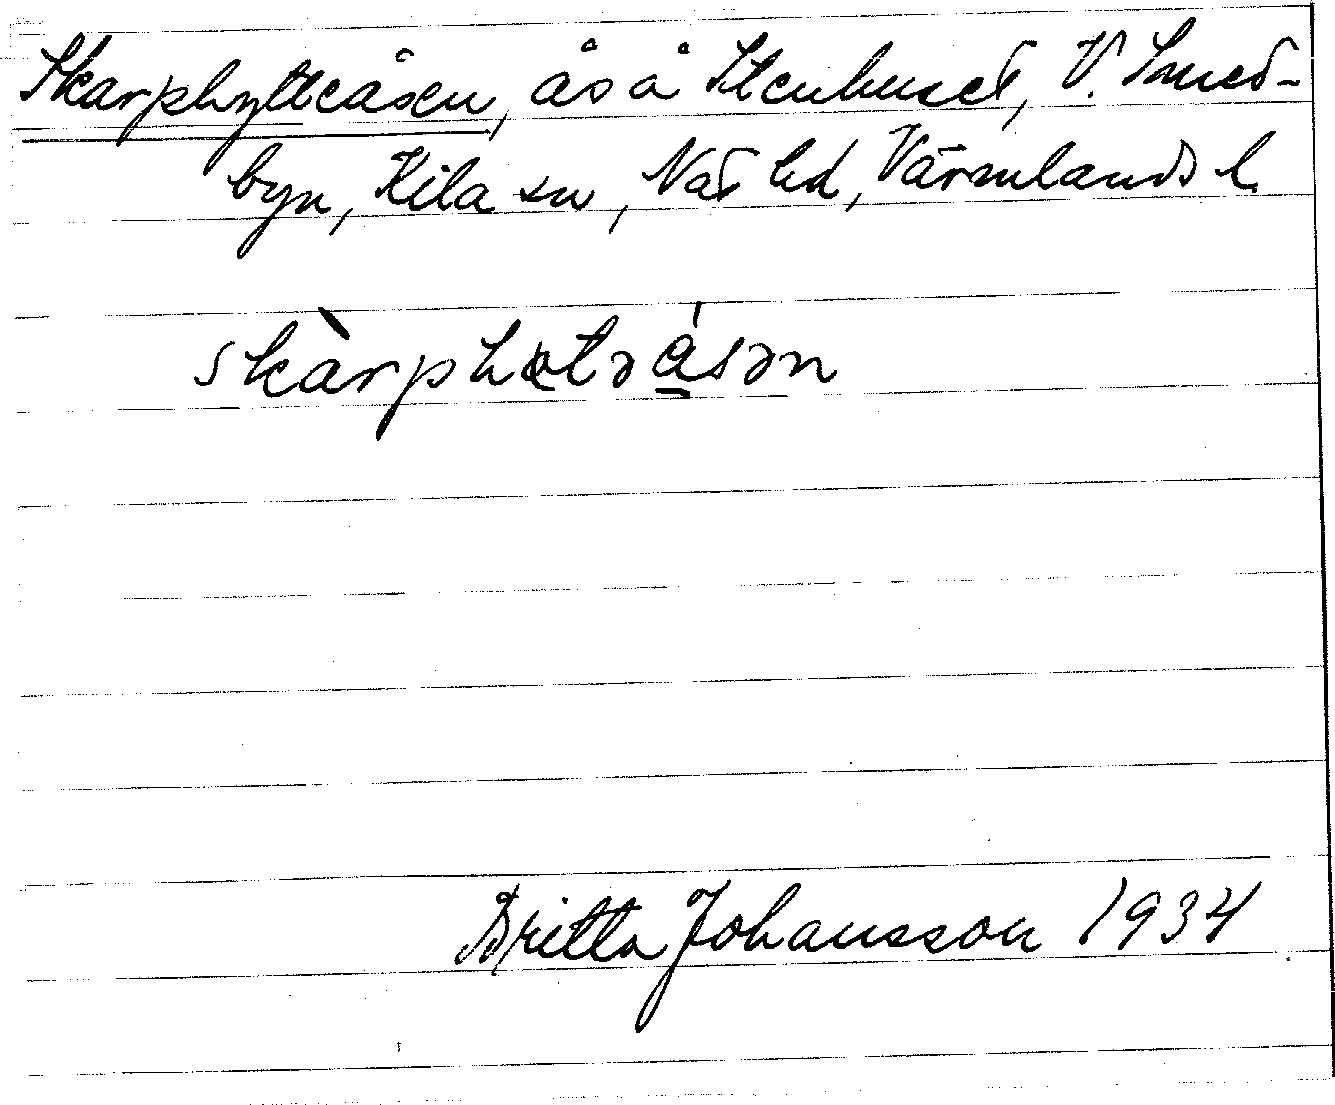 Skarphytteåsen, ås å Stenhuset, V. Smed-
byn, Kila sn, Näs hd, Värmlands l.
skàrphɵtəǻsən
Britta Johansson 1934